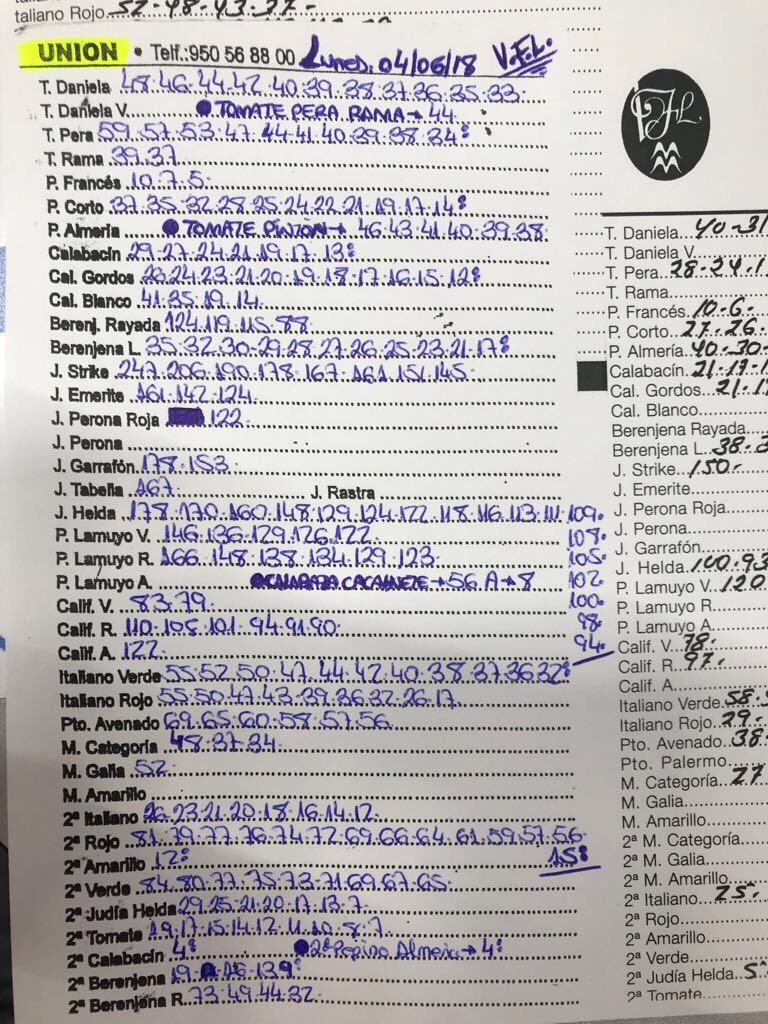 taliano Rojo 52-48-43-37-
UNION • Telf.:950 56 88 00 Lunes, 04/06/18 V.F.L.
T. Daniela 48.46.44.42.40.39.38.37.36.35.33.
T. Daniela V. TOMATE PERA RAMA→44
T. Pera 59.57.53.47.44.41.40.39.38.34
T. Rama 39.37
P. Francés 10.7.5.
P. Corto 37.35.32.28.25.24.22.21.19.17.14
P. Almería TOMATE PINTON→ 46.43.41.40.39.38
Calabacín 29.27.24.21.19.17.13
Cal. Gordos 26.24.23.21.20.19.18.17.16.15.12
Cal. Blanco 41.35.19.14
Berenj. Rayada 124.119.115.88
Berenjena L. 35.32.30.29.28.27.26.25.23.21.17
J. Strike 247.206.190.178.167.161.151.145
J. Emerite 161.142.124
J. Perona Roja 122
J. Perona
J. Garrafón 178.153
J. Tabella 167 J. Rastra
J. Helda 178.170.160.148.129.124.122.118.116.113.111 109.
P. Lamuyo V. 146.136.129.126.122 108.
P. Lamuyo R. 166.148.138.134.129.123 105.
P. Lamuyo A. CALABAZA CACAHUETE→56 A→8 102
Calif. V. 83.79 100.
Calif. R. 110.105.101.94.91.90 98.
Calif. A. 122 94.
Italiano Verde 55.52.50.47.44.42.40.38.37.36.32
Italiano Rojo 55.50.47.43.39.36.32.26.17
Pto. Avenado 69.65.60.58.57.56
M. Categoría 48.37.34
M. Galia 52
M. Amarillo
2ª Italiano 26.23.21.20.18.16.14.12
2ª Rojo 81.79.77.76.74.72.69.66.64.61.59.57.56
2ª Amarillo 12 15
2ª Verde 84.80.77.75.73.71.69.67.65
2ª Judía Helda 29.25.21.20.17.13.7
2ª Tomate 19.17.15.14.12.11.10.8.7
2ª Calabacín 4 2ª Pepino Almería→4
2ª Berenjena 19 16.13 9
2ª Berenjena R. 73.49.44.32
T. Daniela 40-31
T. Daniela V.
T. Pera 28-24-1
T. Rama
P. Francés 10-6-
P. Corto 27-26-
P. Almería 40-30-
Calabacín 21-17-1
Cal. Gordos 21-17
Cal. Blanco
Berenjena Rayada
Berenjena L. 38-3
J. Strike 150-
J. Emerite
J. Perona Roja
J. Perona
J. Garrafón
J. Helda 140-93
P. Lamuyo V. 120
P. Lamuyo R
P. Lamuyo A
Calif. V. 78-
Calif. R. 97-
Calif. A.
Italiano Verde 58-
Italiano Rojo 29-
Pto. Avenado 38-
Pto. Palermo
M. Categoría 27
M. Galia
M. Amarillo
2ª M. Categoría
2ª M. Galia
2ª M. Amarillo
2ª Italiano 25-
2ª Rojo
2ª Amarillo
2ª Verde
2ª Judía Helda 5-
2ª Tomate